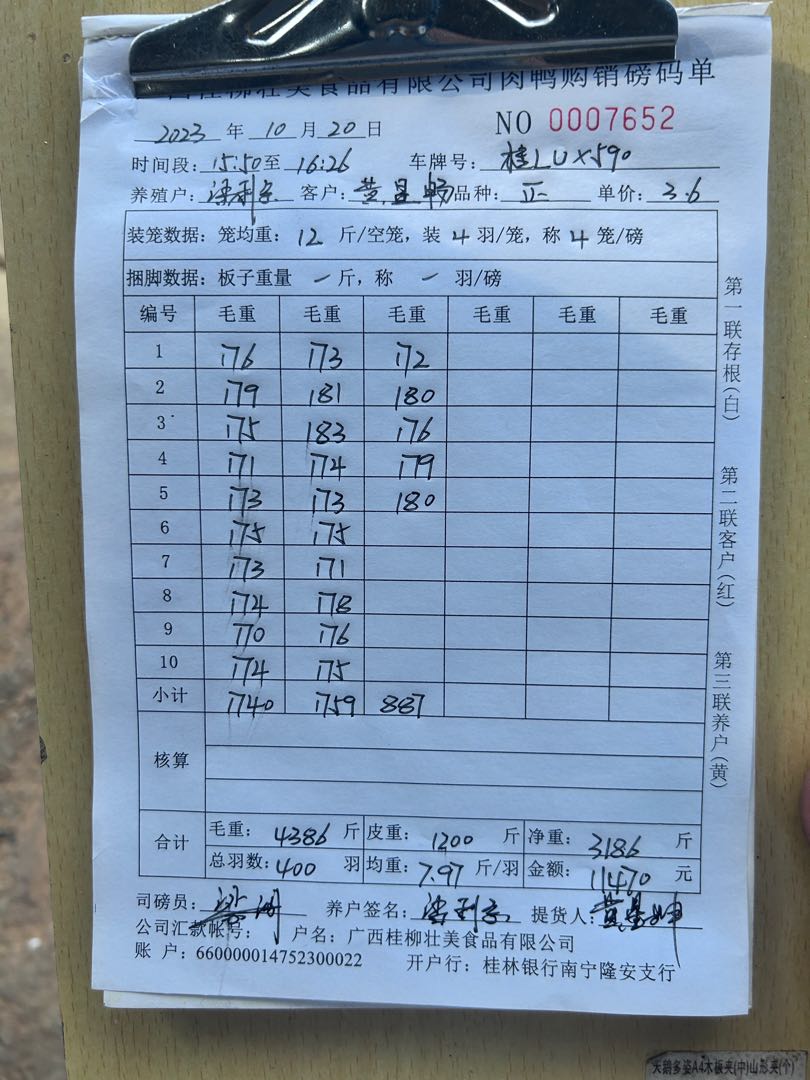 桂柳壮美食品有限公司肉鸭购销磅码单
2023 年 10 月 20 日 NO 0007652
时间段: 15:50 至 16:26 车牌号: 桂LUX590
养殖户: 客户: 黄 品种: 正 单价: 3.6
装笼数据: 笼均重: 12 斤/空笼, 装 4 羽/笼, 称 4 笼/磅
捆脚数据: 板子重量 一 斤, 称 一 羽/磅
编号 毛重 毛重 毛重 毛重 毛重 毛重
1 176 173 172
2 179 181 180
3 175 183 176
4 171 174 179
5 173 173 180
6 175 175
7 173 171
8 174 178
9 170 176
10 174 175
小计 1740 1759 887
核算
合计 毛重: 4386 斤 皮重: 1200 斤 净重: 3186 斤
总羽数: 400 羽 均重: 7.97 斤/羽 金额: 11470 元
司磅员: 养户签名: 提货人:
公司汇款帐号: 户名: 广西桂柳壮美食品有限公司
账 户: 660000014752300022 开户行: 桂林银行南宁隆安支行
第一联存根(白)
第二联客户(红)
第三联养户(黄)
天鹅多姿A4木板夹(中)山形夹(个)